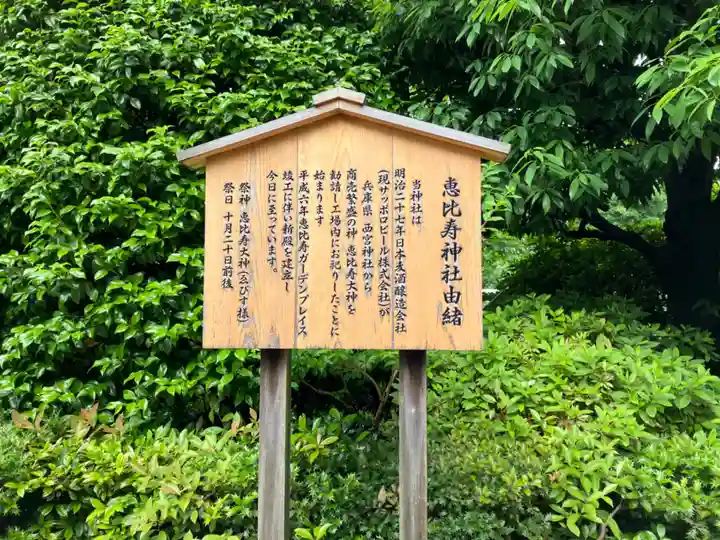 恵比寿神社由緒
当神社は
明治二十七年日本麦酒醸造会社
(現サッポロビール株式会社)が
兵庫県 西宮神社から
商売繁盛の神 恵比寿大神を
勧請し工場内にお祀りしたことに
始まります
平成六年恵比寿ガーデンプレイス
竣工に伴い新殿を建立し
今日に至っています。
祭神 恵比寿大神(ゑびす様)
祭日 十月二十日前後